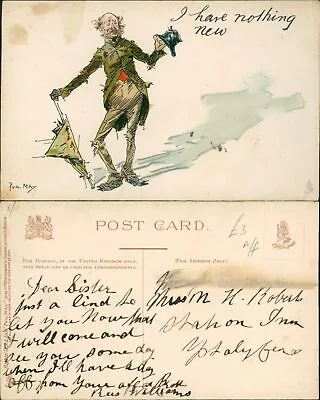 I have nothing
new
PHIL MAY
POST CARD.
FOR POSTAGE, IN THE UNITED KINGDOM ONLY,
THIS SPACE MAY BE USED FOR CORRESPONDENCE
(FOR ADDRESS ONLY.)
£3
Dear Sister
just a lind to
let you Now that
I will come and
see you some day
when I'll have day
off from your
Williams
Robert
Station Inn
Ystalyfera